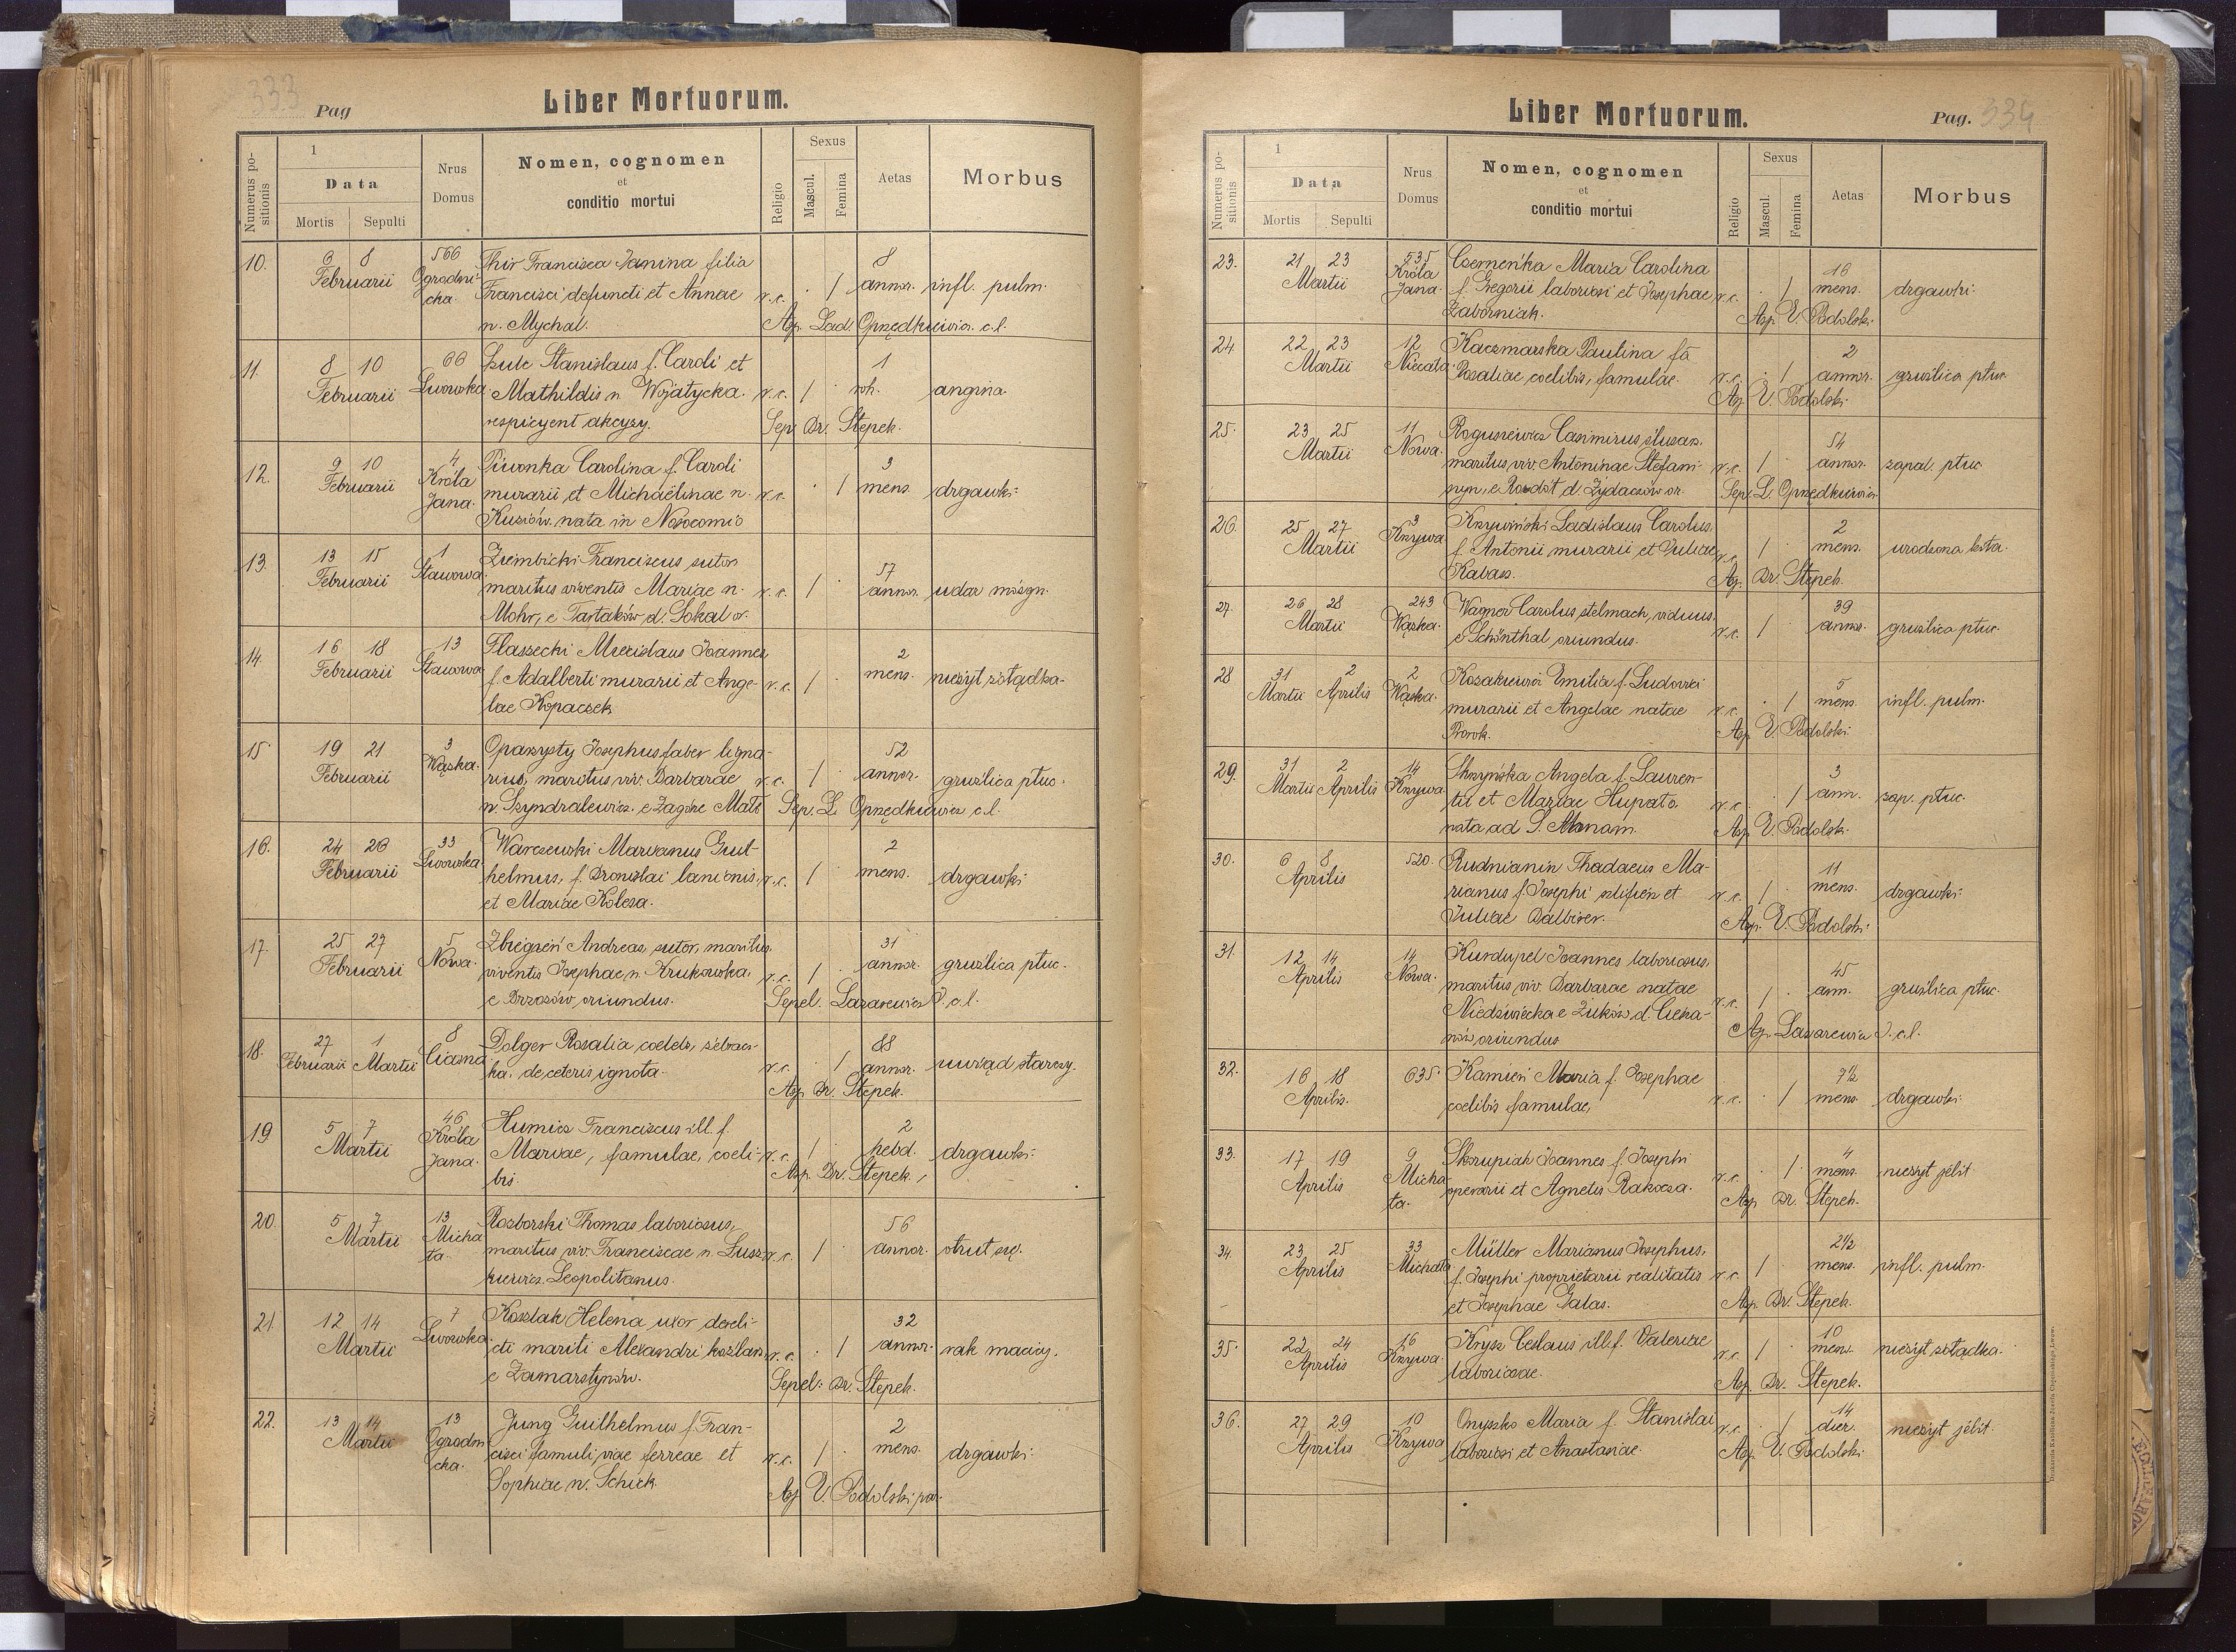 333
Pag
Liber Mortuorum.
Numerus positionis
1
Data
Mortis Sepulti
Nrus Domus
Nomen, cognomen
et
conditio mortui
Religio
Sexus
Mascul. Femina
Aetas
Morbus
10. 6 8 566 Thir Francisca Janina filia 8
Februarii Ogrodnicka Francisci defuncti et Annae r.c. / annor. infl. pulm.
n. Mychal. Asp. Lad. Oprzędkiewicz c.l.
11. 8 10 66 Szulc Stanislaus f. Caroli et 1
Februarii Lwowska Mathildis n Wojatycka. r.c. / angina.
respicyent akcyzy. Sep. Dr. Stępek.
12. 9 10 4 Piwonka Carolina f. Caroli 3
Februarii Króla Jana. murarii et Michaëlinae n. r.c. / mens. drgawki
Kuziów nata in Nosocomio
13. 13 15 1 Zrembicki Franciscus sutor 57
Februarii Stawowa maritus viventis Mariae n. r.c. / annor. udar mózgn.
Mohr, e Tartaków d. Sokal or.
14. 16 18 13 Flaszecki Miecislaus Joannes 2
Februarii Stawowa f. Adalberti murarii et Ange- r.c. / mens. nieżyt żołądka
lae Kopaczek
15 19 21 3 Oparzysty Josephus faber ligna- 52
Februarii Wązka. rius, maritus viv. Barbarae r.c. / annor. gruźlica płuc.
n. Szyndralewicz. e Zagórze Sep. L. Oprzędkiewicz c.l.
16. 24 26 33 Warczewski Marianus Guil- 2
Februarii Lwowska helmus, f. Bronislai lanionis, r.c. / mens. drgawki
et Mariae Kolesa.
17. 25 27 5 Zbiegień Andreas, sutor, maritus 31
Februarii Nowa. viventis Josephae, n. Krukowska, r.c. / annor. gruźlica płuc.
e Brzozów, oriundus. Sepel. Lazarewicz J. c.l.
18. 27 1 8 Dolger Rosalia coelebs, żebracz- 88
Februarii Martii Ciasna ka. de ceteris ignota. r.c. / annor. uwiąd starczy.
Asp. Dr. Stępek.
19 5 7 46 Humicz Franciscus ill. f. 2
Martii Króla Jana. Mariae, famulae, coeli- r.c. / hebd. drgawki
bis. Asp. Dr. Stępek.
20. 5 7 13 Rozborski Thomas laboriosus, 56
Martii Michata. maritus viv. Franciscae n. Lusz r.c. / annor. otruł się.
kiewicz. Leopolitanus.
21. 12 14 7 Kozlak Helena uxor dereli- 32
Martii Lwowska cti mariti Alexandri kozlak r.c. / annor. rak macicy.
e Zamarstynów. Sepel. Dr. Stępek.
22. 13 14 13 Jung Guilhelmus f. Fran- 2
Martii Ogrodnicka. cisci famuli viae ferreae et r.c. / mens. drgawki
Sophiae n. Schick. Asp V. Podolski par.
Liber Mortuorum.
Pag. 334
Numerus positionis
1
Data
Mortis Sepulti
Nrus Domus
Nomen, cognomen
et
conditio mortui
Religio
Sexus
Mascul. Femina
Aetas
Morbus
23. 21 23 535 Czemeńka Maria Carolina 16
Martii Króla Jana. f. Gregorii laboriosi et Josephae r.c. / mens. drgawki
Zaborniak. Asp. V. Podolski
24. 22 23 12 Kaczmarska Paulina fa 2
Martii Niecała Rosaliae coelibis, famulae. r.c. / annor. gruźlica płuc
Asp. V. Podolski
25. 23 25 11 Roguszewicz Casimirus ślusarz. 54
Martii Nowa. maritus viv. Antoninae Stefani- r.c. / annor. zapal. płuc
nyn, e Rozdół d. Żydaczów or. Sep. L. Oprzędkiewicz
26. 25 27 3 Krzywiński Ladislaus Carolus, 2
Martii Krzywa f. Antonii murarii et Juliae r.c. / mens. wrodzona
Kabacz. Asp. Dr. Stępek.
27. 26 28 243 Wagner Carolus stelmach, viduus, 39
Martii Wązka. e Schönthal oriundus. r.c. / annor. gruźlica płuc.
28 31 2 2 Kozakiewicz Emilia f. Ludovici 5
Martii Aprilis Wązka. murarii et Angelae natae r.c. / mens. infl. pulm.
Prorok. Asp. V. Podolski
29. 31 2 14 Skrzyńska Angela f. Lauren- 3
Martii Aprilis Krzywa tii et Mariae Hupało r.c. / ann. zap. płuc.
nata ad S. Annam. Asp. V. Podolski
30. 6 8 520. Rudnianin Thadaeus Ma- 11
Aprilis rianus f. Josephi et r.c. / mens. drgawki
Juliae Balbirer. Asp. V. Podolski
31. 12 14 14 Kurdypel Joannes laboriosus, 45
Aprilis Nowa. maritus viv. Barbarae natae r.c. / ann. gruźlica płuc.
Niedźwiecka e Żuków d. Ciesza-
nów oriundus Asp. Lazarewicz J. c.l.
32. 16 18 635. Kamień Maria f. Josephae 7½
Aprilis. coelibis famulae, r.c. / mens. drgawki
33. 17 19 9 Skorupiak Joannes f. Josephi 4
Aprilis Michata. operarii et Agnetis Rakocza. r.c. / mens. nieżyt jelit
Asp Dr. Stępek.
34. 23 25 33 Müller Marianus Josephus, 2½
Aprilis Michata f. Josephi proprietarii realitatis r.c. / mens. infl. pulm.
et Josephae Galas. Asp. Dr. Stępek.
35. 22 24 16 Krysz Ceslaus ill. f. Valeriae 10
Aprilis Krzywa laboriosae. r.c. / mens. nieżyt żołądka.
Asp. Dr. Stępek.
36. 27 29 10 Onyszko Maria f. Stanislai 14
Aprilis Krzywa laboriosi et Anastasiae. r.c. / dier. nieżyt jelit.
Asp. V. Podolski